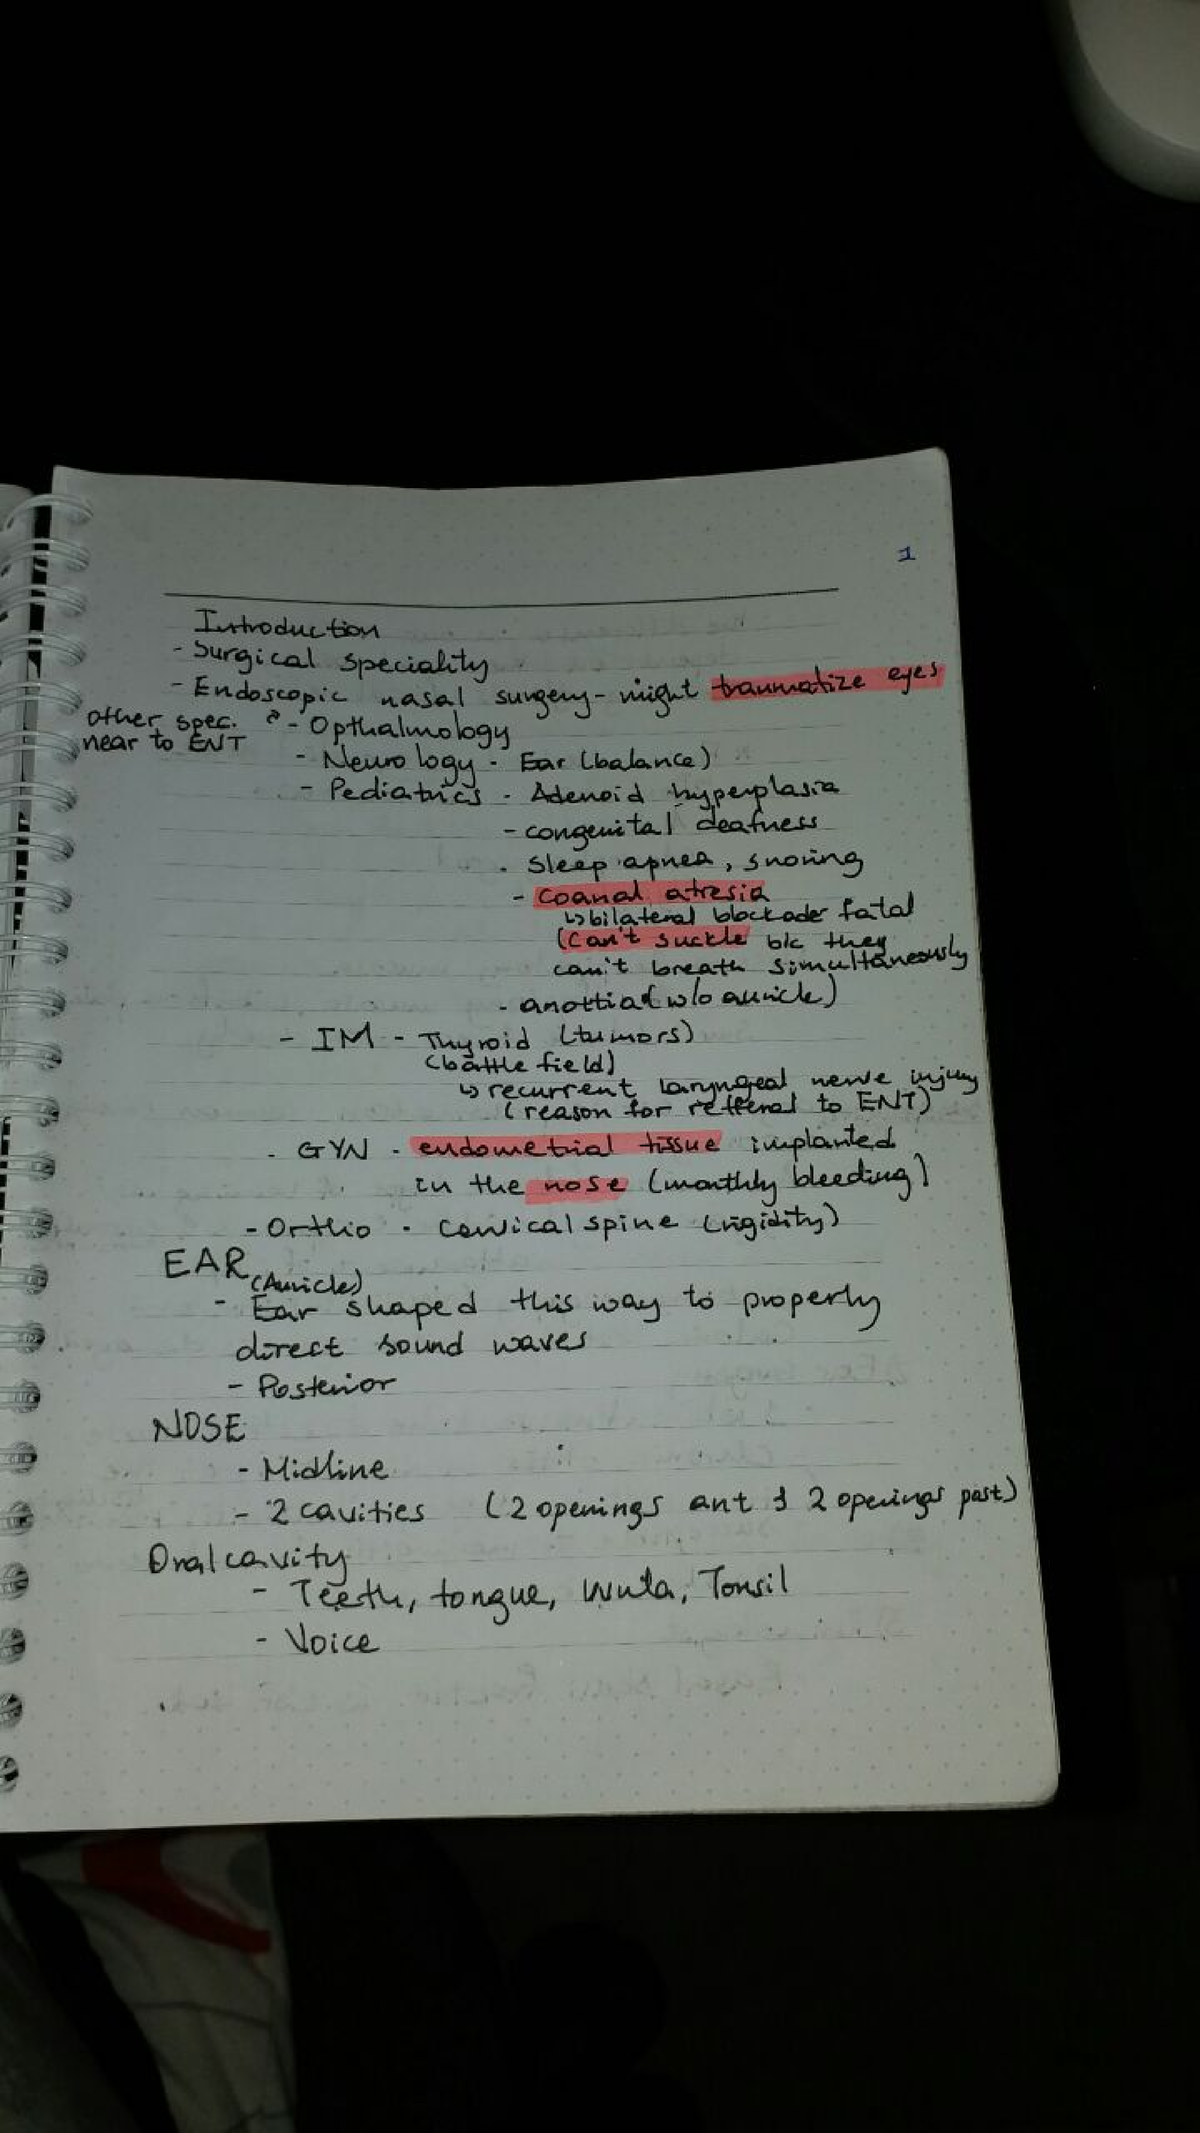 1
Introduction
- Surgical speciality
- Endoscopic nasal surgery - might traumatize eyes
other spec. near to ENT
- Opthalmology
- Neurology - Ear (balance)
- Pediatrics - Adenoid hyperplasia
- congenital deafness
- Sleep apnea, snoring
- coanal atresia
↳ bilateral blockade fatal
(can't suckle b/c they
can't breath simultaneously
- anottia (w/o auricle)
- IM - Thyroid (tumors)
(battle field)
↳ recurrent laryngeal nerve injury
(reason for refferal to ENT)
- GYN - endometrial tissue implanted
in the nose (monthly bleeding)
- Ortho - Cervical spine (rigidity)
EAR
(Auricle)
- Ear shaped this way to properly
direct sound waves
- Posterior
NOSE
- Midline
- 2 cavities (2 openings ant & 2 openings post)
Oral cavity
- Teeth, tongue, Tonsil
- Voice